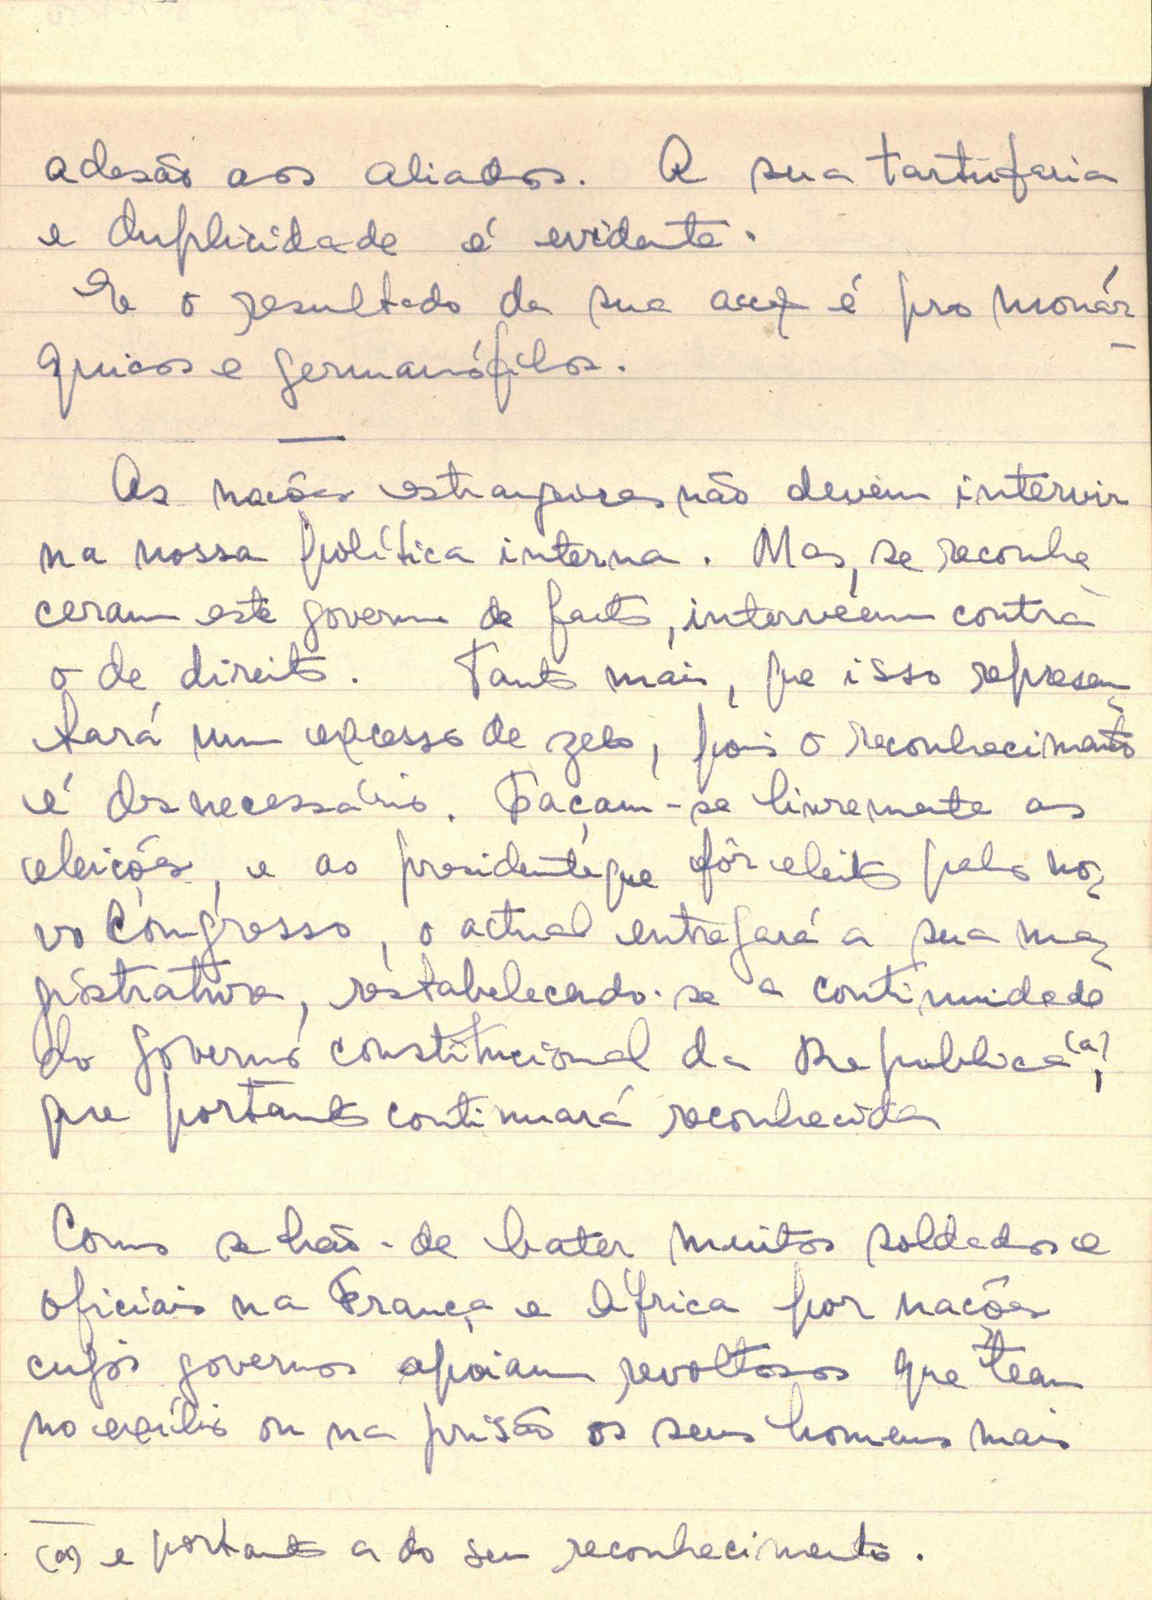 adesão aos aliados. A sua tartuferia
e duplicidade é evidente.
E o resultado da sua é pro monár-
quicos e germanófilos.
As nações estrangeiras não devem intervir
na nossa política interna. Mas, se reconhe-
ceram este governo de facto, intervéem contra
o de direito. Tanto mais, que isso represen-
tará um excesso de zelo, pois o reconhecimento
é desnecessário. Façam-se livremente as
eleições, e ao presidente que fôr eleito pelo no-
vo Congresso, o actual entregará a sua ma-
gistratura, restabelecendo-se a continuidade
do governo constitucional da Republica (a),
que portanto continuará reconhecida
Como se hão-de bater muitos soldados e
oficiais na França e África por nações
cujos governos apoiam revoltosos que teem
no exílio ou na prisão os seus homens mais
(a) e portanto a do seu reconhecimento.